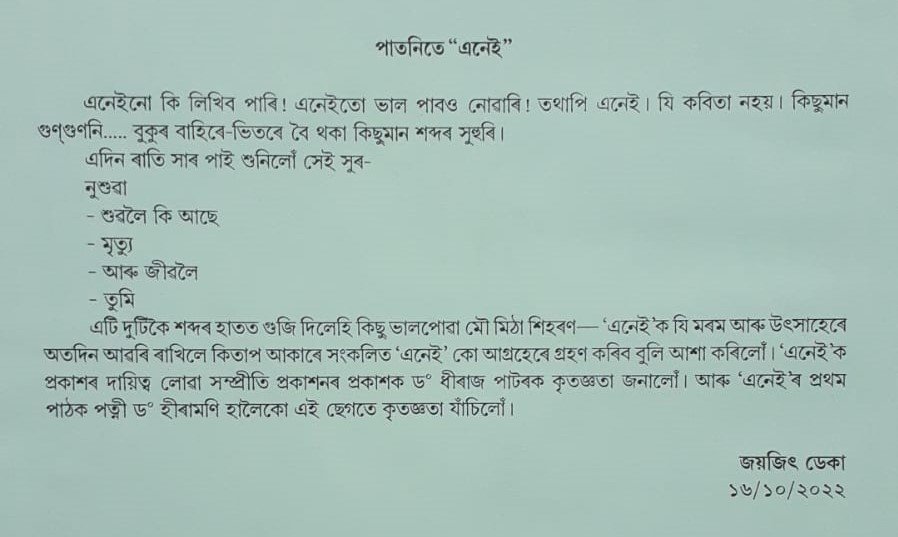 পাতনিতে “এনেই”
এনেইনো কি লিখিব পাৰি! এনেইতো ভাল পাবও নোৱাৰি! তথাপি এনেই। যি কবিতা নহয়। কিছুমান
গুণ্‌গুণনি..... বুকুৰ বাহিৰে-ভিতৰে বৈ থকা কিছুমান শব্দৰ সুহুৰি।
এদিন ৰাতি সাৰ পাই শুনিলোঁ সেই সুৰ-
নুশুৱা
- শুৱলৈ কি আছে
- মৃত্যু
- আৰু জীৱলৈ
- তুমি
এটি দুটিকৈ শব্দৰ হাতত গুজি দিলেহি কিছু ভালপোৱা মৌ মিঠা শিহৰণ— ‘এনেই’ক যি মৰম আৰু উৎসাহেৰে
অতদিন আৱৰি ৰাখিলে কিতাপ আকাৰে সংকলিত ‘এনেই’ কো আগ্ৰহেৰে গ্ৰহণ কৰিব বুলি আশা কৰিলোঁ। ‘এনেই’ক
প্ৰকাশৰ দায়িত্ব লোৱা সম্প্ৰীতি প্ৰকাশনৰ প্ৰকাশক ড° ধীৰাজ পাটৰক কৃতজ্ঞতা জনালোঁ। আৰু ‘এনেই’ৰ প্ৰথম
পাঠক পত্নী ড° হীৰামণি হালৈকো এই ছেগতে কৃতজ্ঞতা যাঁচিলোঁ।
জয়জিৎ ডেকা
১৬/১০/২০২২